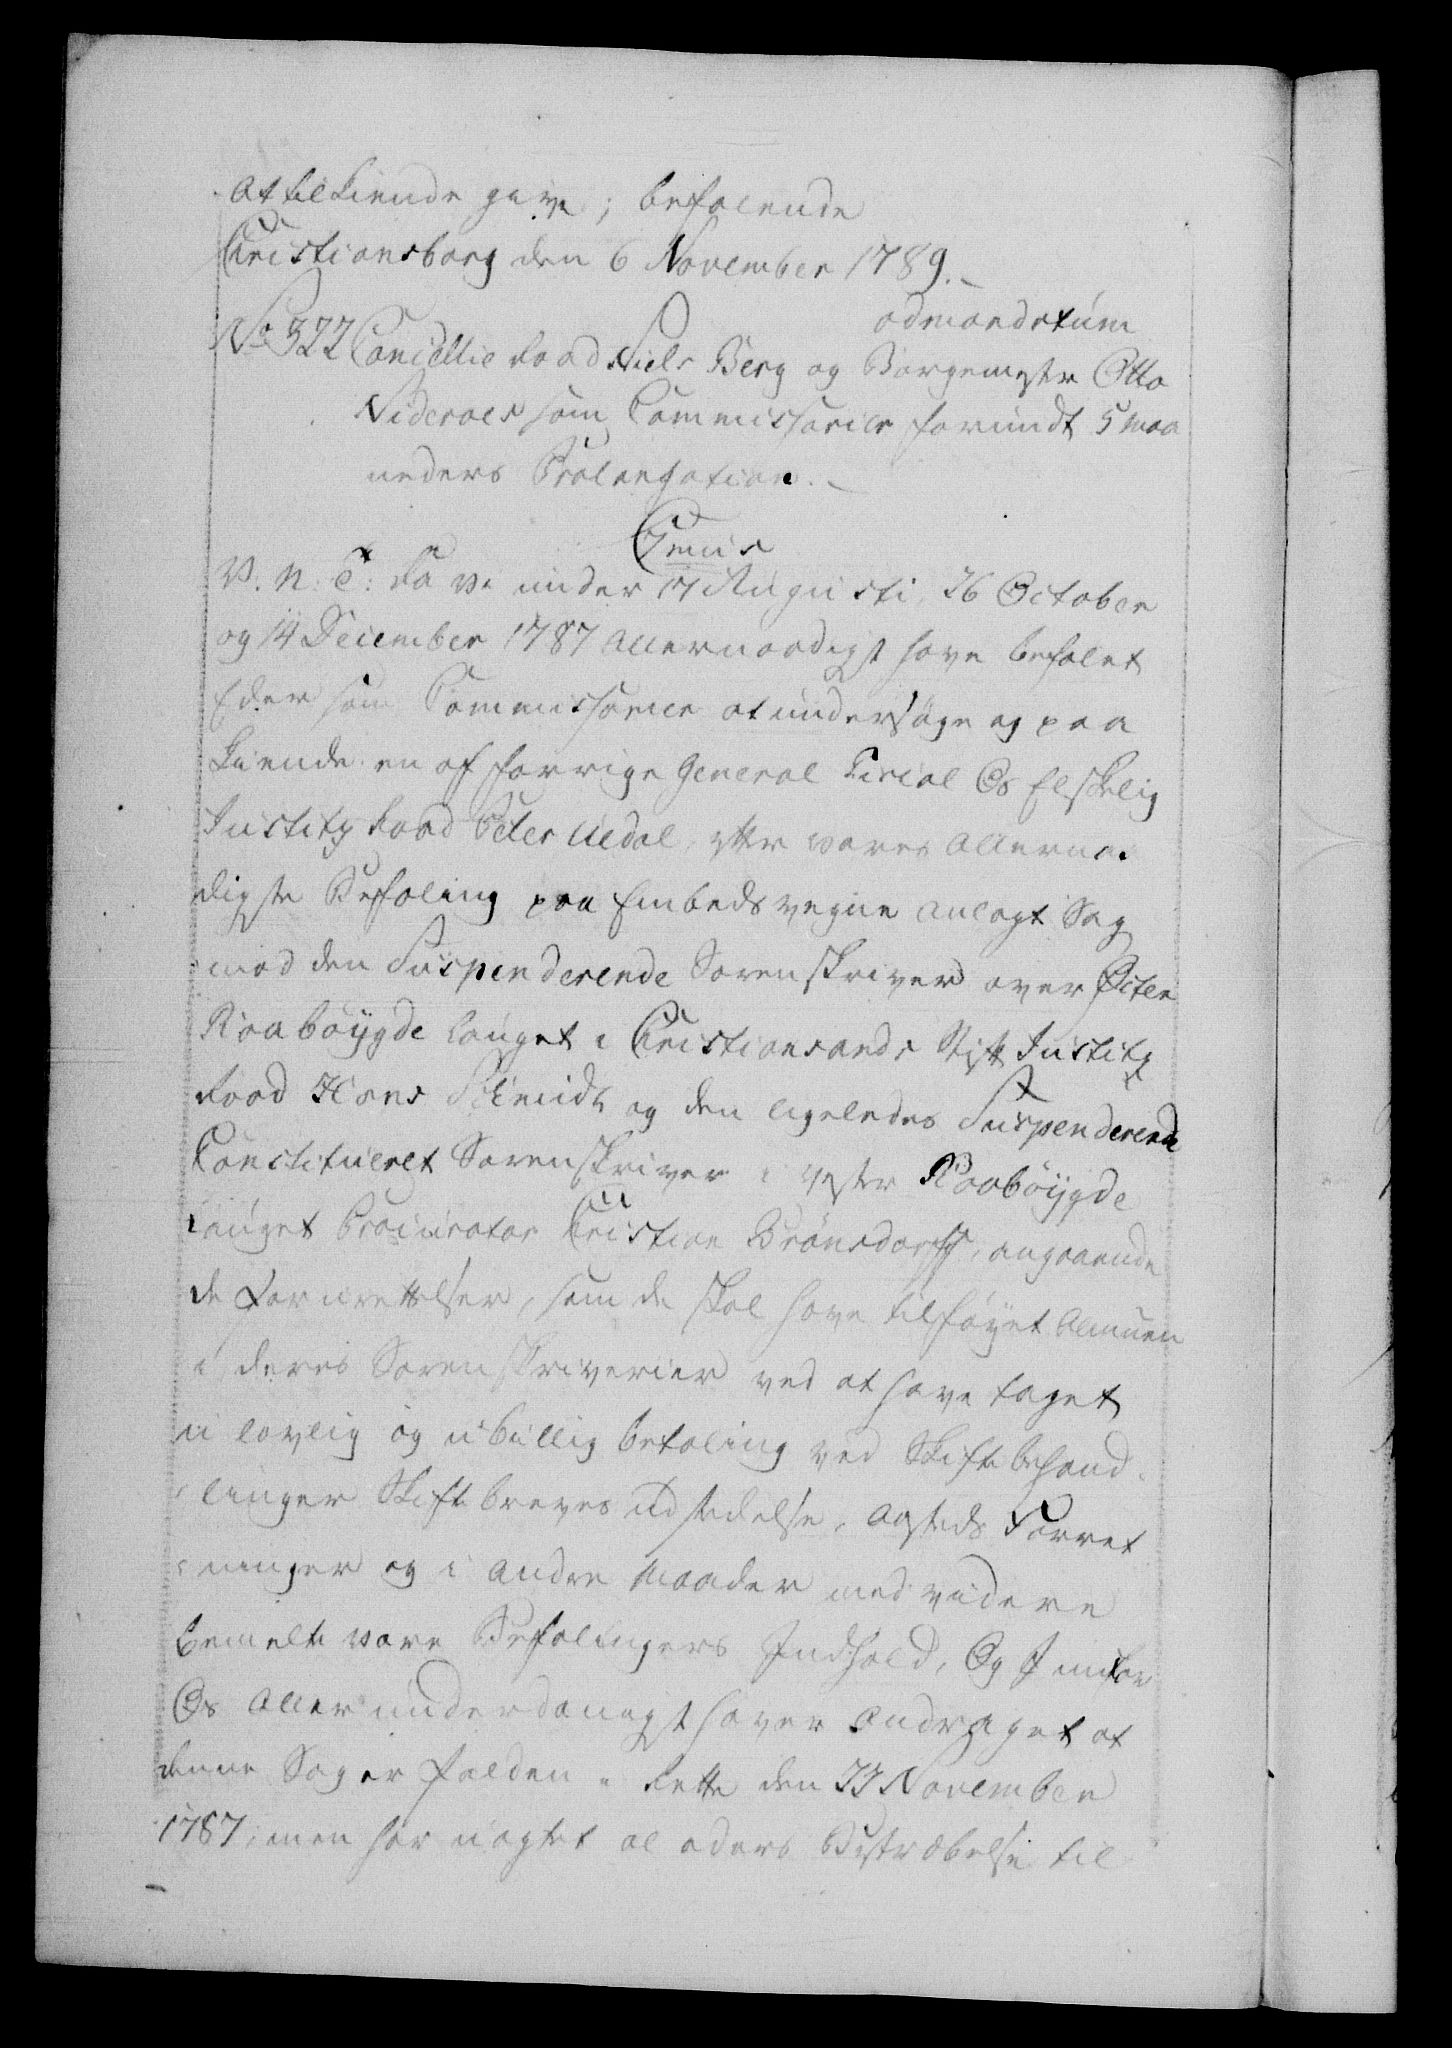 at tilkiende give; befalende
Christiansborg den 6 November 1789.
ad mandatum
No 322 Cancellie Raad Niels Berg og Borgemester Otto
Sideroes som Commissarier forundt 5 maa
neders Prolongation.
C 7mus
V. n. T: Da Vi under 17 Augusti, 26 October
og 14 December 1787 allernaadigst have befalet
Eder som Commissarier at undersöge og paa
kiende en af forrige General Fiscal Os Elskelig
Justitz Raad Peter Uldal, efter vores Allerna
digste Befaling paa Embeds vegne anlagt Sag
mod den Suspenderende Sorenskriver over Öster
Raaböygde lauget i Christiansands Stift Justitz
Raad Hans Smidt og den ligeledes Suspenderende
Constitueret Sorenskriver i Vester Raabÿgde
lauget Procurator Christian Brönsdorff, angaaende
de Forurettelser, som de skal have tilföyet Almuen
i deres Sorenskriverier ved at have taget
ulovlig og ubillig betaling ved Skifte behand-
linger Skifte breves udstedelse, Aasteds Forret
ninger og i andre Maader med videre
bemelte vore Befalingers Indhold, Og I nu for
Os Allerunderdanigst haver andraget at
denne Sag er falden i Rette den 23 November
1787, men har uagtet al eders Bestræbelse til